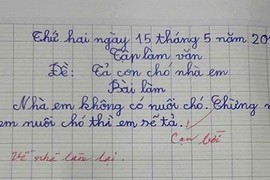 Thứ hai ngày 15 tháng 5 năm 20
Tập làm văn
Đề: Tả con chó nhà em
Bài làm
Nhà em không có nuôi chó. Chừng n
em nuôi chó thì em sẽ tả.
Con bởi
Về nhà làm lại.